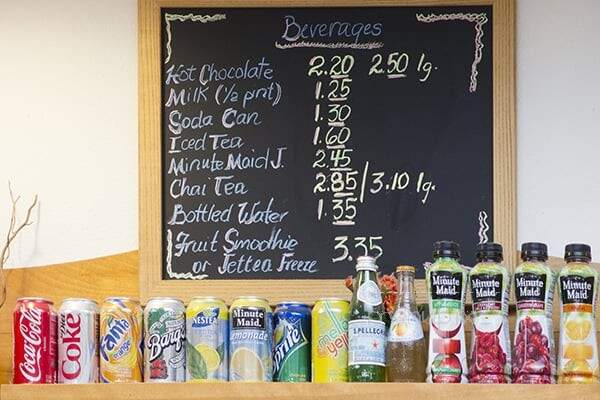 Beverages
Hot Chocolate 2.20 2.50 lg.
Milk (½ pnt) 1.25
Soda Can 1.30
Iced Tea 1.60
Minute Maid J. 2.45
Chai Tea 2.85/3.10 lg.
Bottled Water 1.35
Fruit Smoothie 3.35
or Jettea Freeze
Coca-Cola
Diet Coke
Fanta
orange
Barq's
NESTEA
Minute Maid
Lemonade
Sprite
mello yello
S.PELLEGRINO
Minute Maid
Minute Maid
Minute Maid
Minute Maid